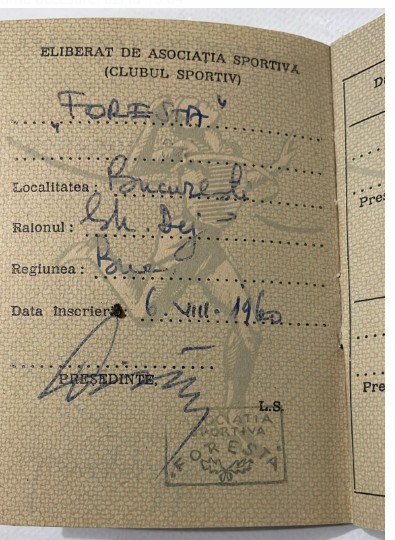 ELIBERAT DE ASOCIAȚIA SPORTIVĂ
(CLUBUL SPORTIV)
„FORESTA"
Localitatea: București
Raionul: Gh. Dej
Regiunea: Buc
Data înscrierii: 6 VIII. 1960
PREȘEDINTE,
L.S.
ASOCIAȚIA
SPORTIVĂ
"FORESTA"
Pres
Pre